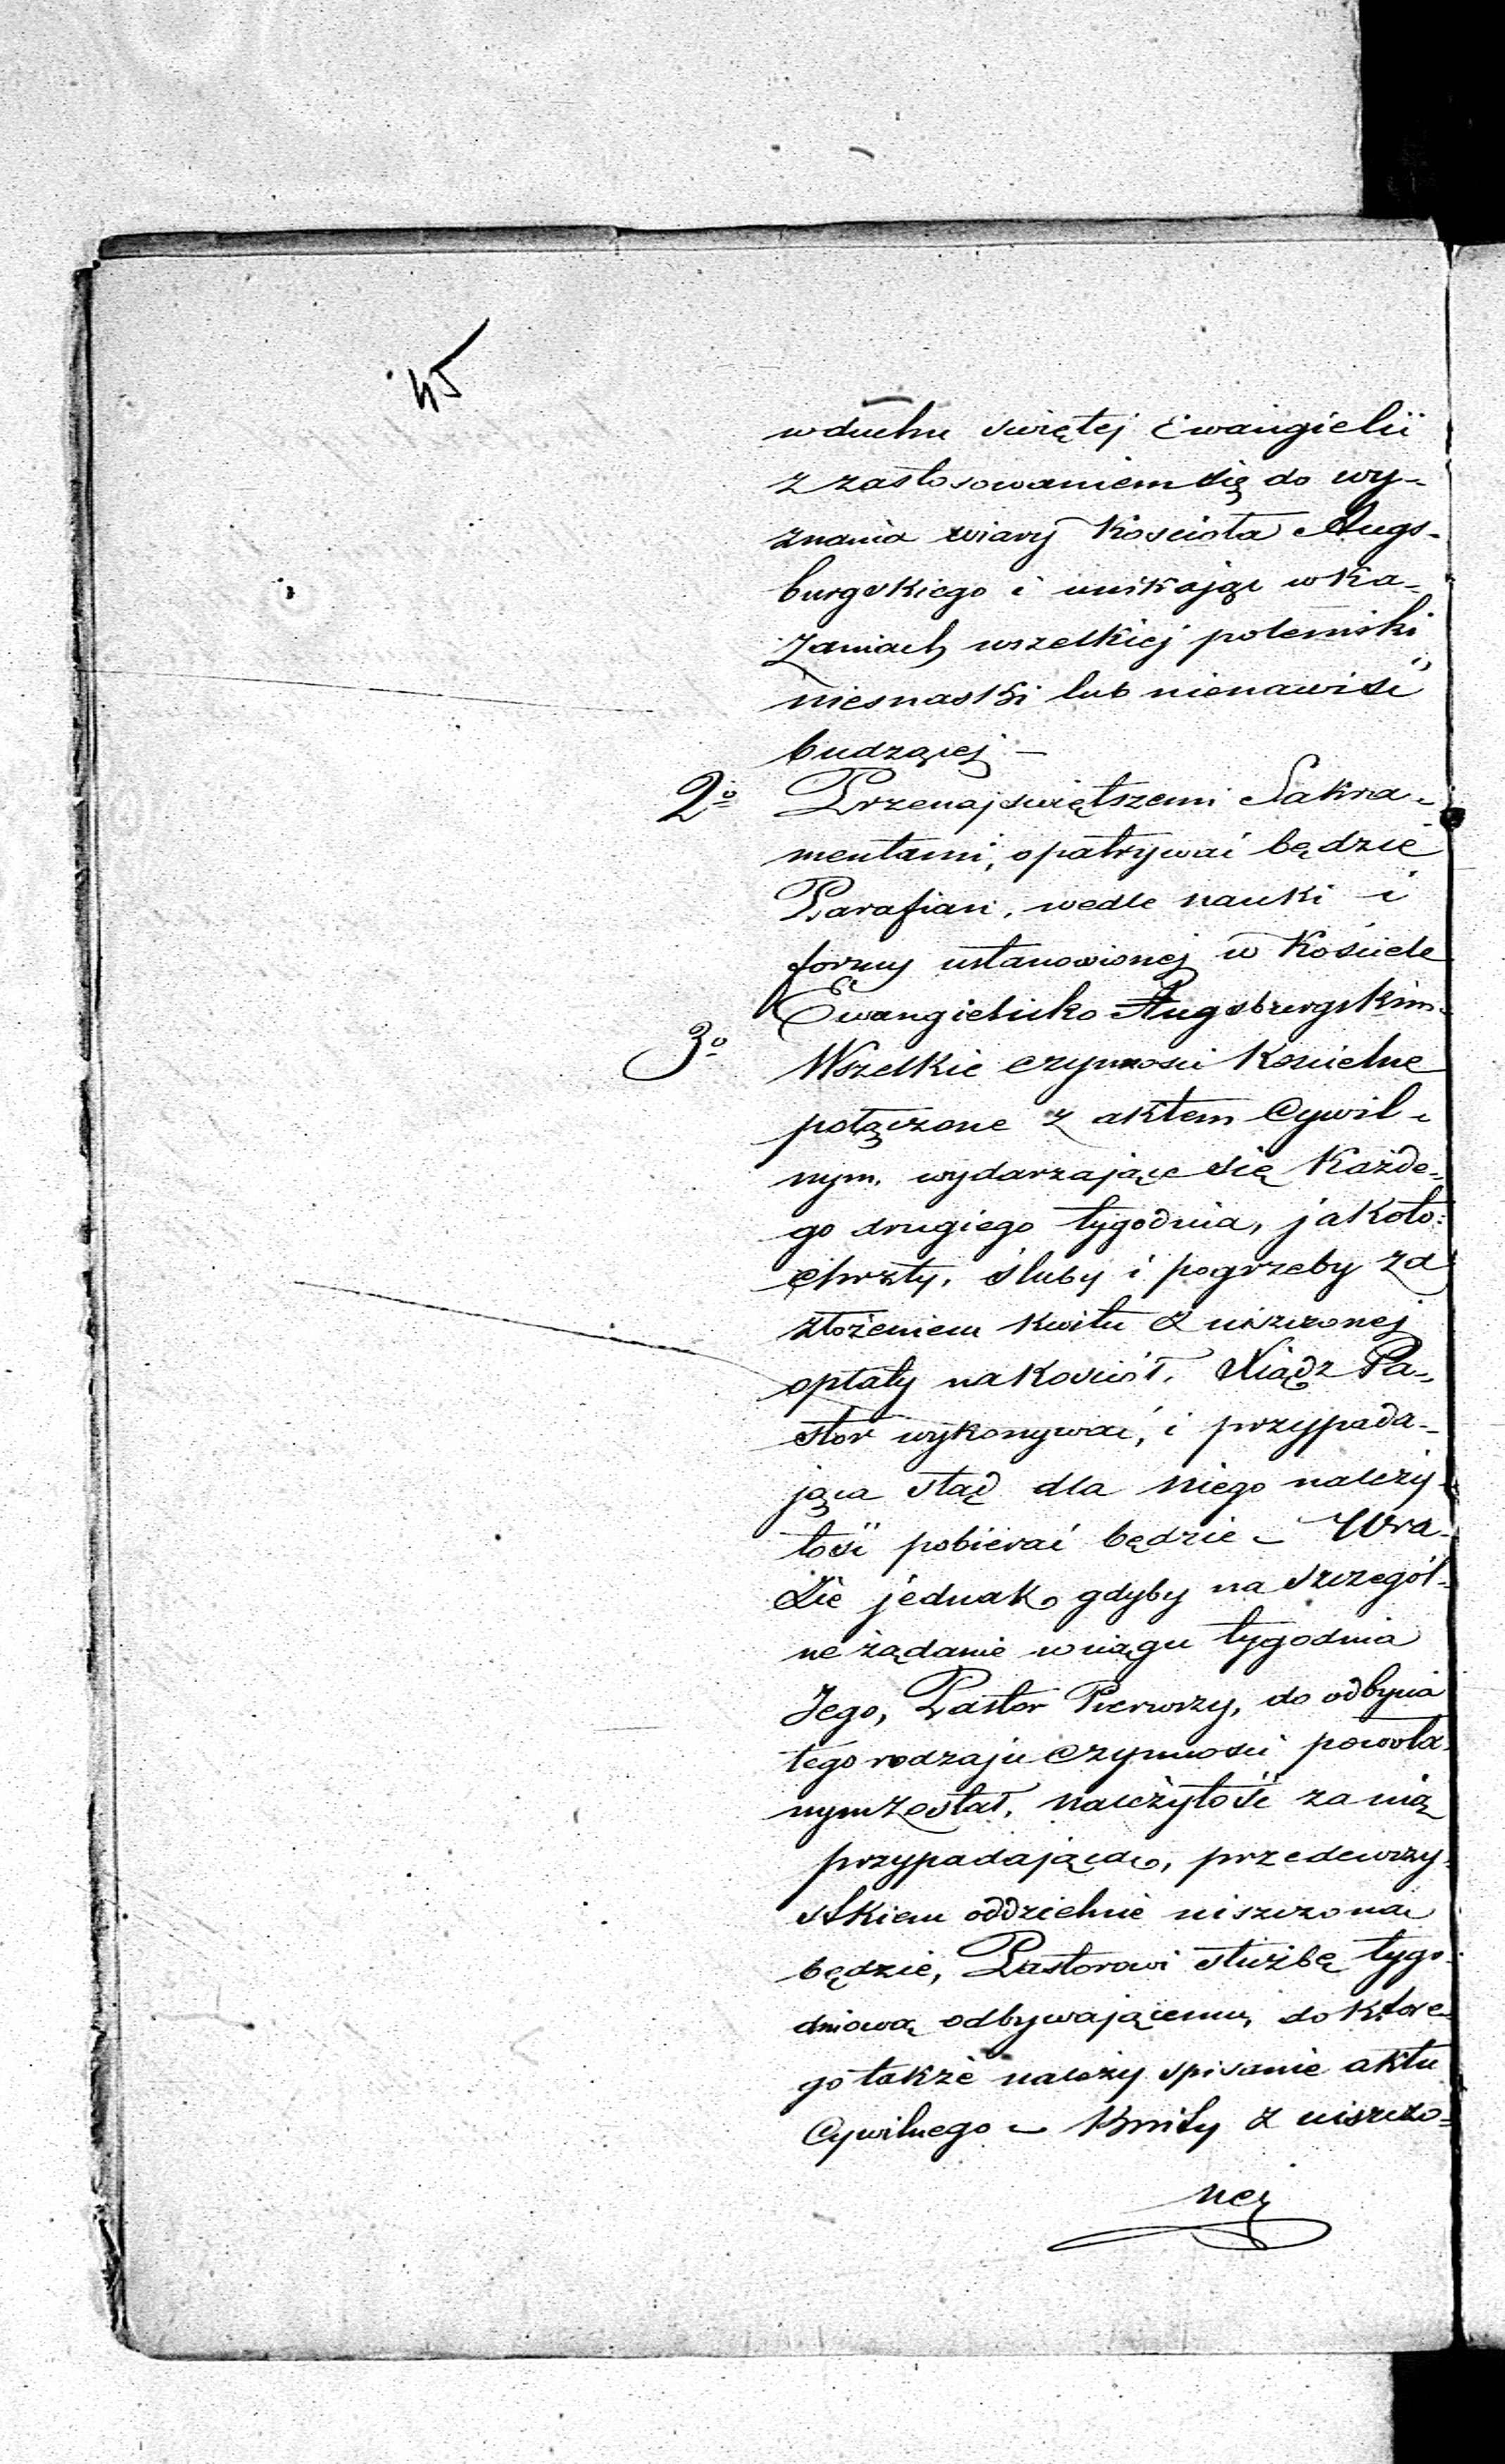 45
w duchu świętej Ewangielii
z zastosowaniem się do wy-
znania wiary Kościoła Augs-
burgskiego i unikając w ka-
zaniach wszelkiej polemiki
niesnaski lub nienawiść
budzącej –
2o Przenajświętszemi Sakra-
mentami, opatrywać będzie
Parafian, wedle nauki i
formy ustanowionej w Kościele
Ewangielicko Augsburgskim.
3o Wszelkie czynności Kościelne
połączone z aktem Cywil-
nym, wydarzające się Każde-
go drugiego tygodnia, jakoto:
Chrzty, śluby i pogrzeby za
złożeniem Kwitu z uiszczonej
opłaty na Kościół, Xiądz Pa-
stor wykonywać, i przypada-
jąca stąd dla niego należy-
tość pobierać będzie – W ra-
zie jednak gdyby na szczegól-
ne żądanie w ciągu tygodnia
Jego, Pastor Pierwszy, do odbycia
tego rodzaju czynności powoła-
nym został, należytość za nią
przypadająca, przedewszy-
stkiem oddzielnie uiszczona
będzie, Pastorowi służbę tygo-
dniową odbywającemu, do które-
go także należy spisanie aktu
Cywilnego – Kwity z uiszczo-
nej